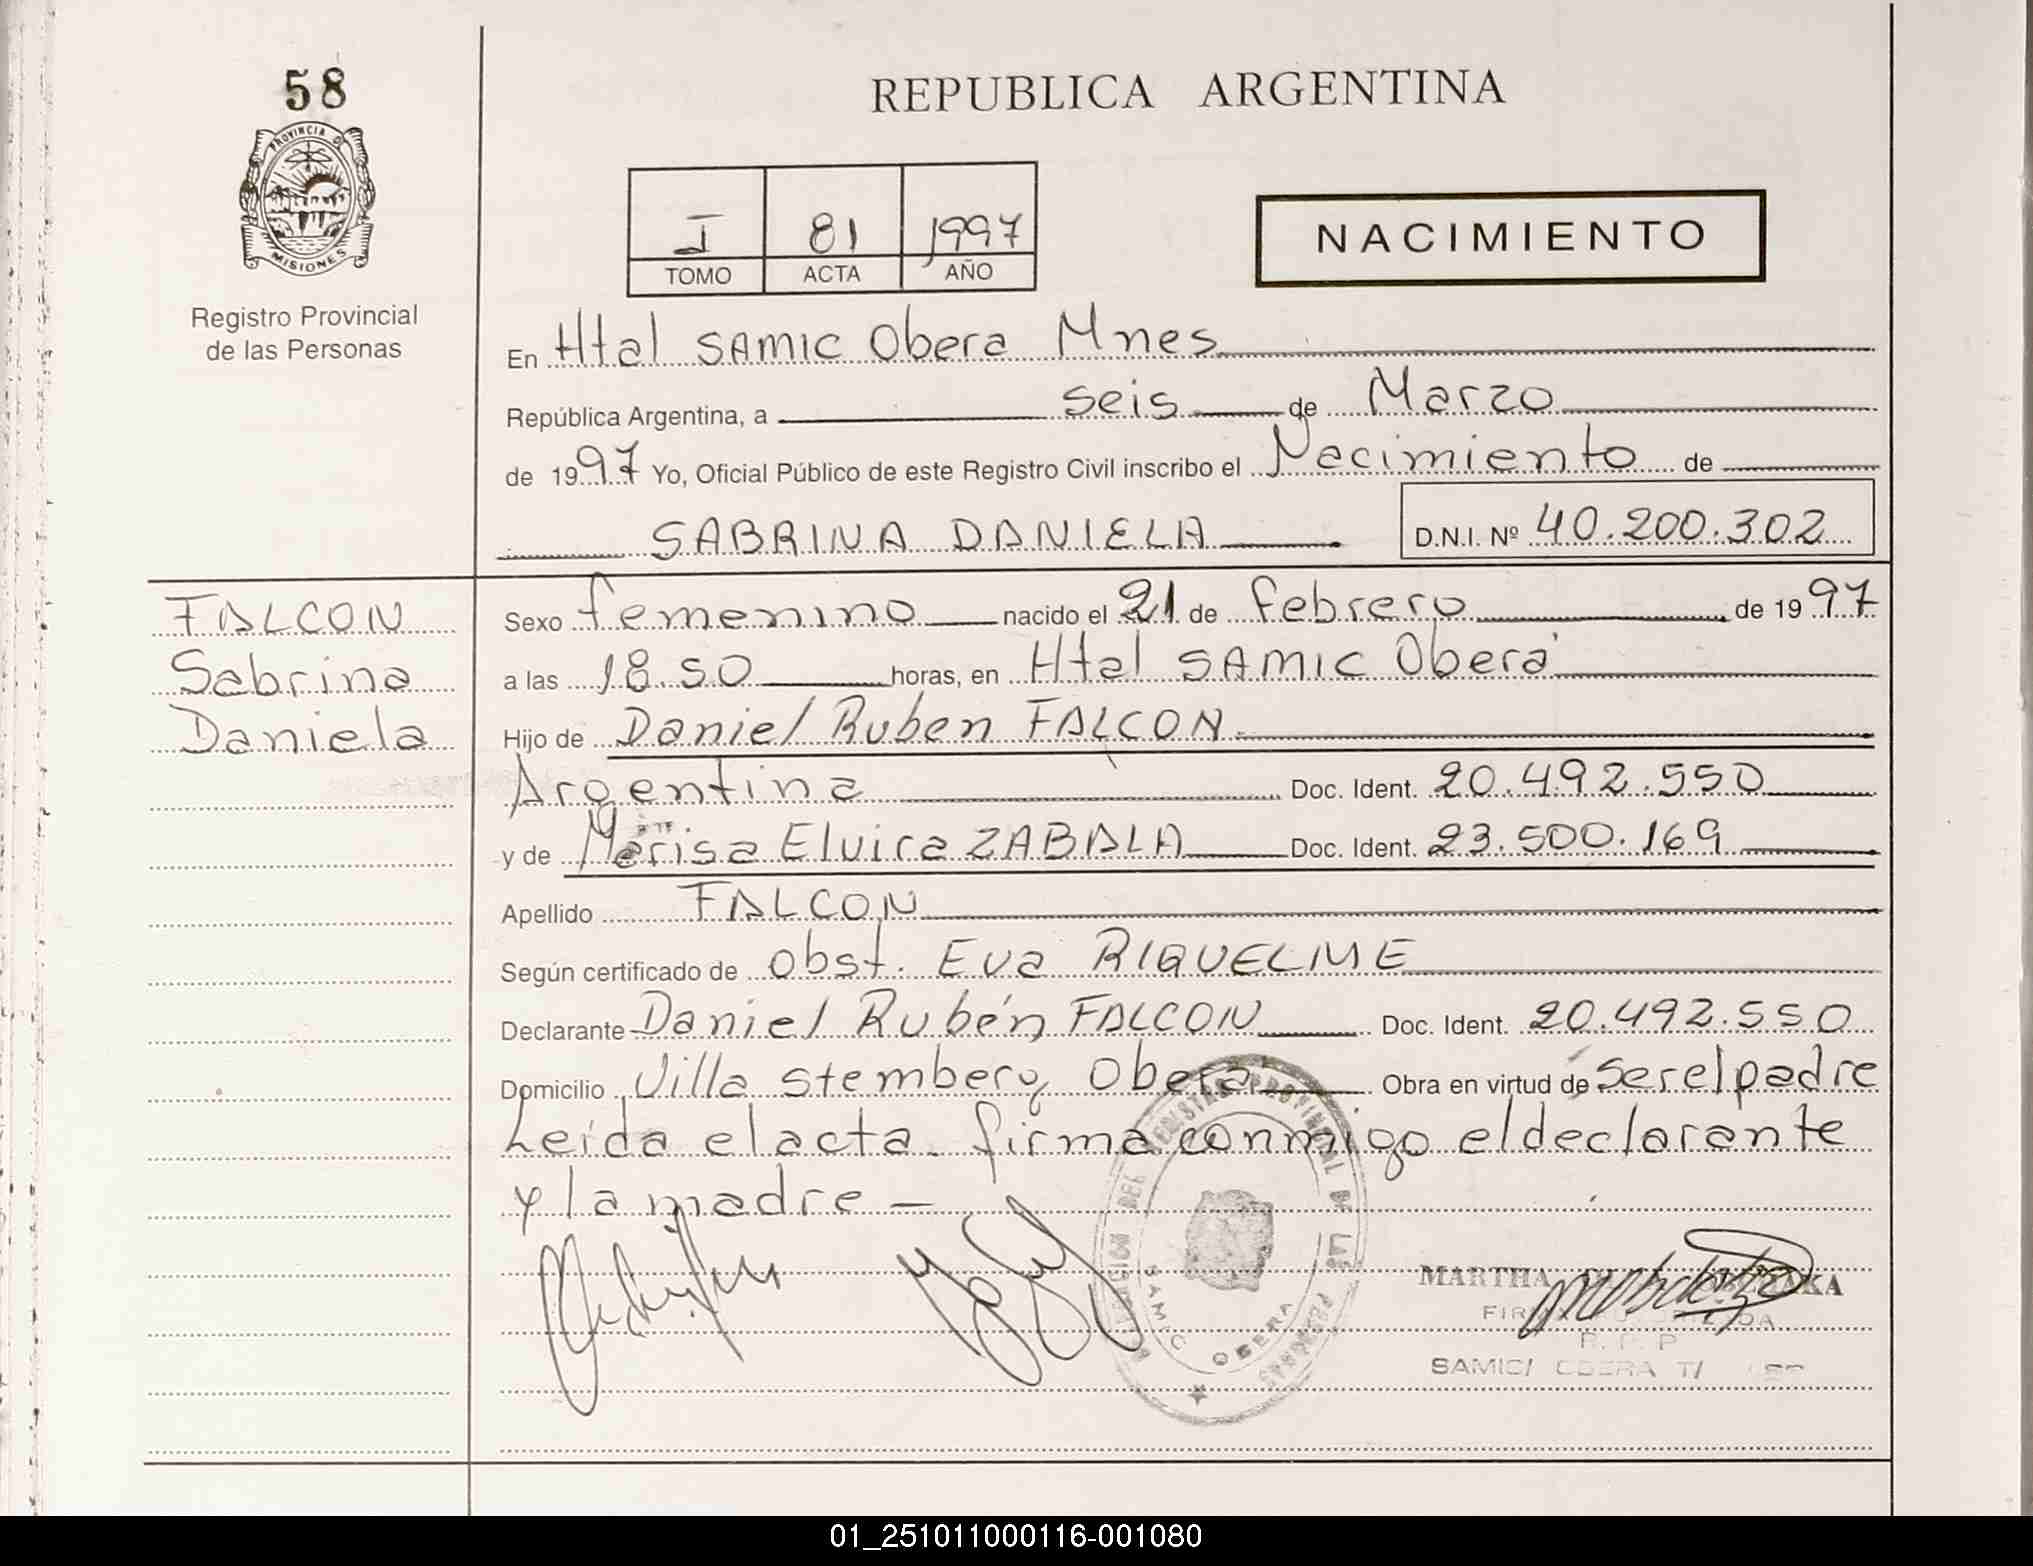 58
PROVINCIA DE
MISIONES
Registro Provincial
de las Personas
REPUBLICA ARGENTINA
I 81 1997
TOMO ACTA AÑO
NACIMIENTO
En Htal SAMIC Obera Mnes
República Argentina, a seis de Marzo
de 1997 Yo, Oficial Público de este Registro Civil inscribo el Nacimiento de
SABRINA DANIELA D.N.I. Nº 40.200.302
FALCON
Sabrina
Daniela
Sexo femenino nacido el 21 de febrero de 1997
a las 18.50 horas, en Htal SAMIC Oberá
Hijo de Daniel Ruben FALCON
Argentina Doc. Ident. 20.492.550
y de Marisa Elvira ZABALA Doc. Ident. 23.500.169
Apellido FALCON
Según certificado de obst. Eva RIQUELME
Declarante Daniel Rubén FALCON Doc. Ident. 20.492.550
Domicilio Villa Stemberg Oberá Obra en virtud de ser el padre
Leída el acta firma conmigo el declarante
y la madre –
REGISTRO PROVINCIAL DE LAS PERSONAS
SAMIC OBERA
MARTHA
R. P. P
SAMIC/ OBERA
01_251011000116-001080